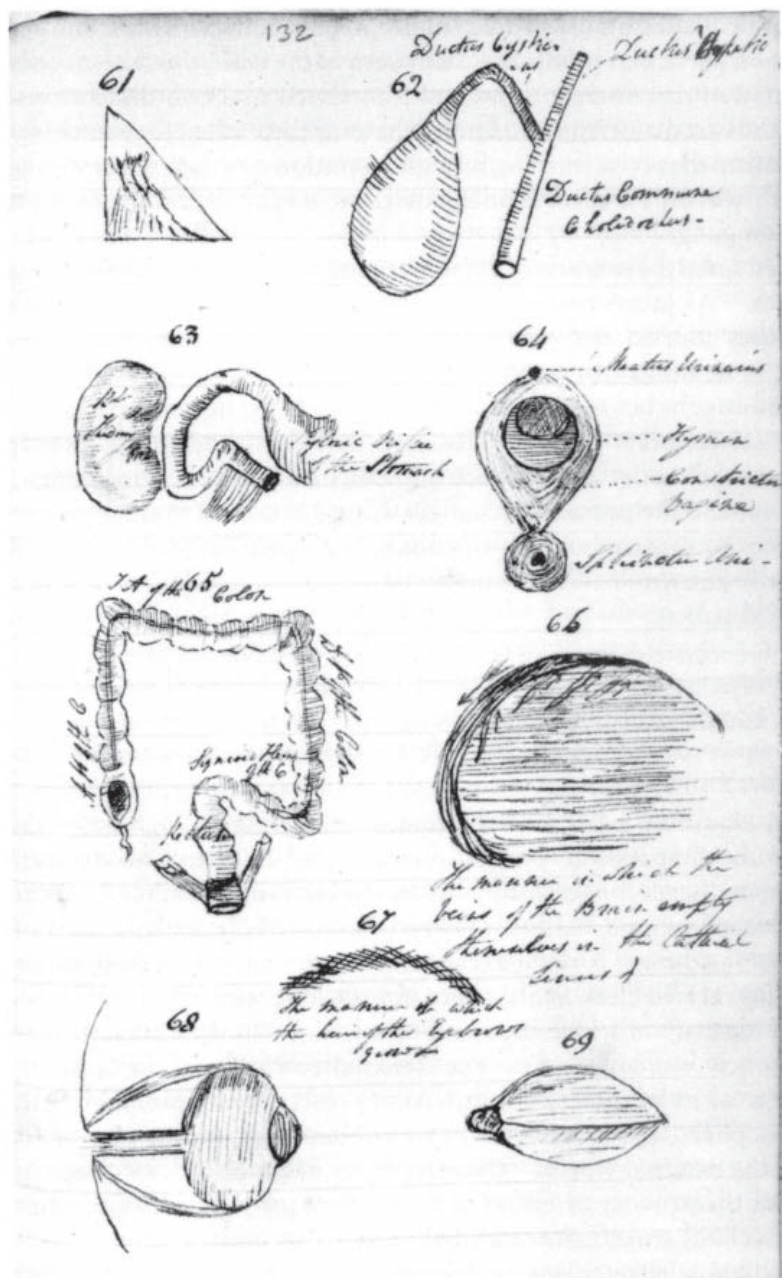 132
61
62
Ductus Cystic
Ductus Hepatic
Ductus Communa
Choledochus-
63
Pyloric Orifice
of the Stomach
64
Meatus Urinarius
Hymen
Constrictor
Vagina
Sphincter Ani-
65
TA of the Colon
Sigmoid Flexure
of the C
Rectum
66
The manner in which the
veins of the Brain empty
themselves in the Lateral
Sinus
67
The manner of which
the hair of the Eyebrows
grows
68
69